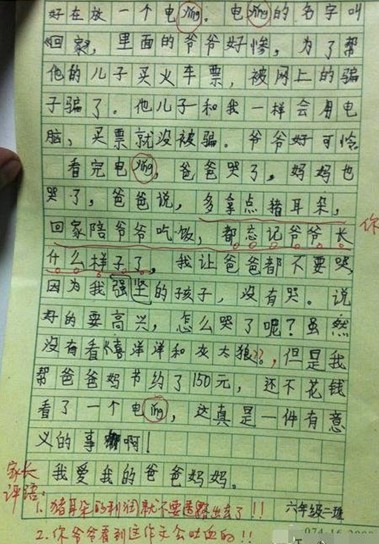 好在放一个电。电的名字叫
《回家》，里面的爷爷好惨，为了帮
他的儿子买火车票，被网上的骗
子骗了。他儿子和我一样会用电
脑，买票就没被骗。爷爷好可怜
看完电，爸爸哭了，妈妈也
哭了，爸爸说，多拿点猪耳朵，
回家陪爷爷吃饭，都忘记爷爷长 你
什么样子了。我让爸爸都不要哭
因为我坚强的孩子，没有哭。说
好的要高兴，怎么哭了呢？虽然
没有看《喜洋洋和灰太狼》，但是我
帮爸爸妈节约了150元，还不花钱
看了一个电，这真是一件有意
义的事啊！
我爱我的爸爸妈妈。
家长
评语：
1.猪耳朵的利润就不要透露出去了!!
六年级二班
2.你爷爷看到这作文会吐血的!!